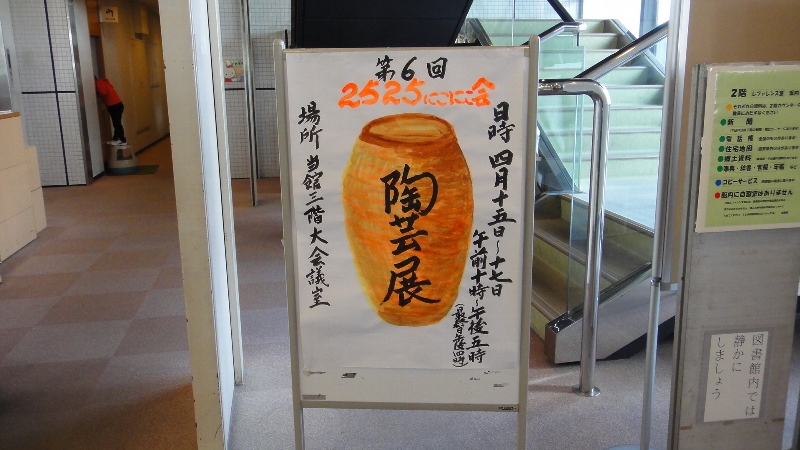 第6回
2525にこにこ会
陶芸展
日時 四月十五日~十七日
午前十時~午後五時
(最終日午後四時)
場所 当館三階大会議室
2階 レファレンス室
新聞
電話帳
住宅地図
郷土資料
コピーサービス
図書館内では
静かに
しましょう